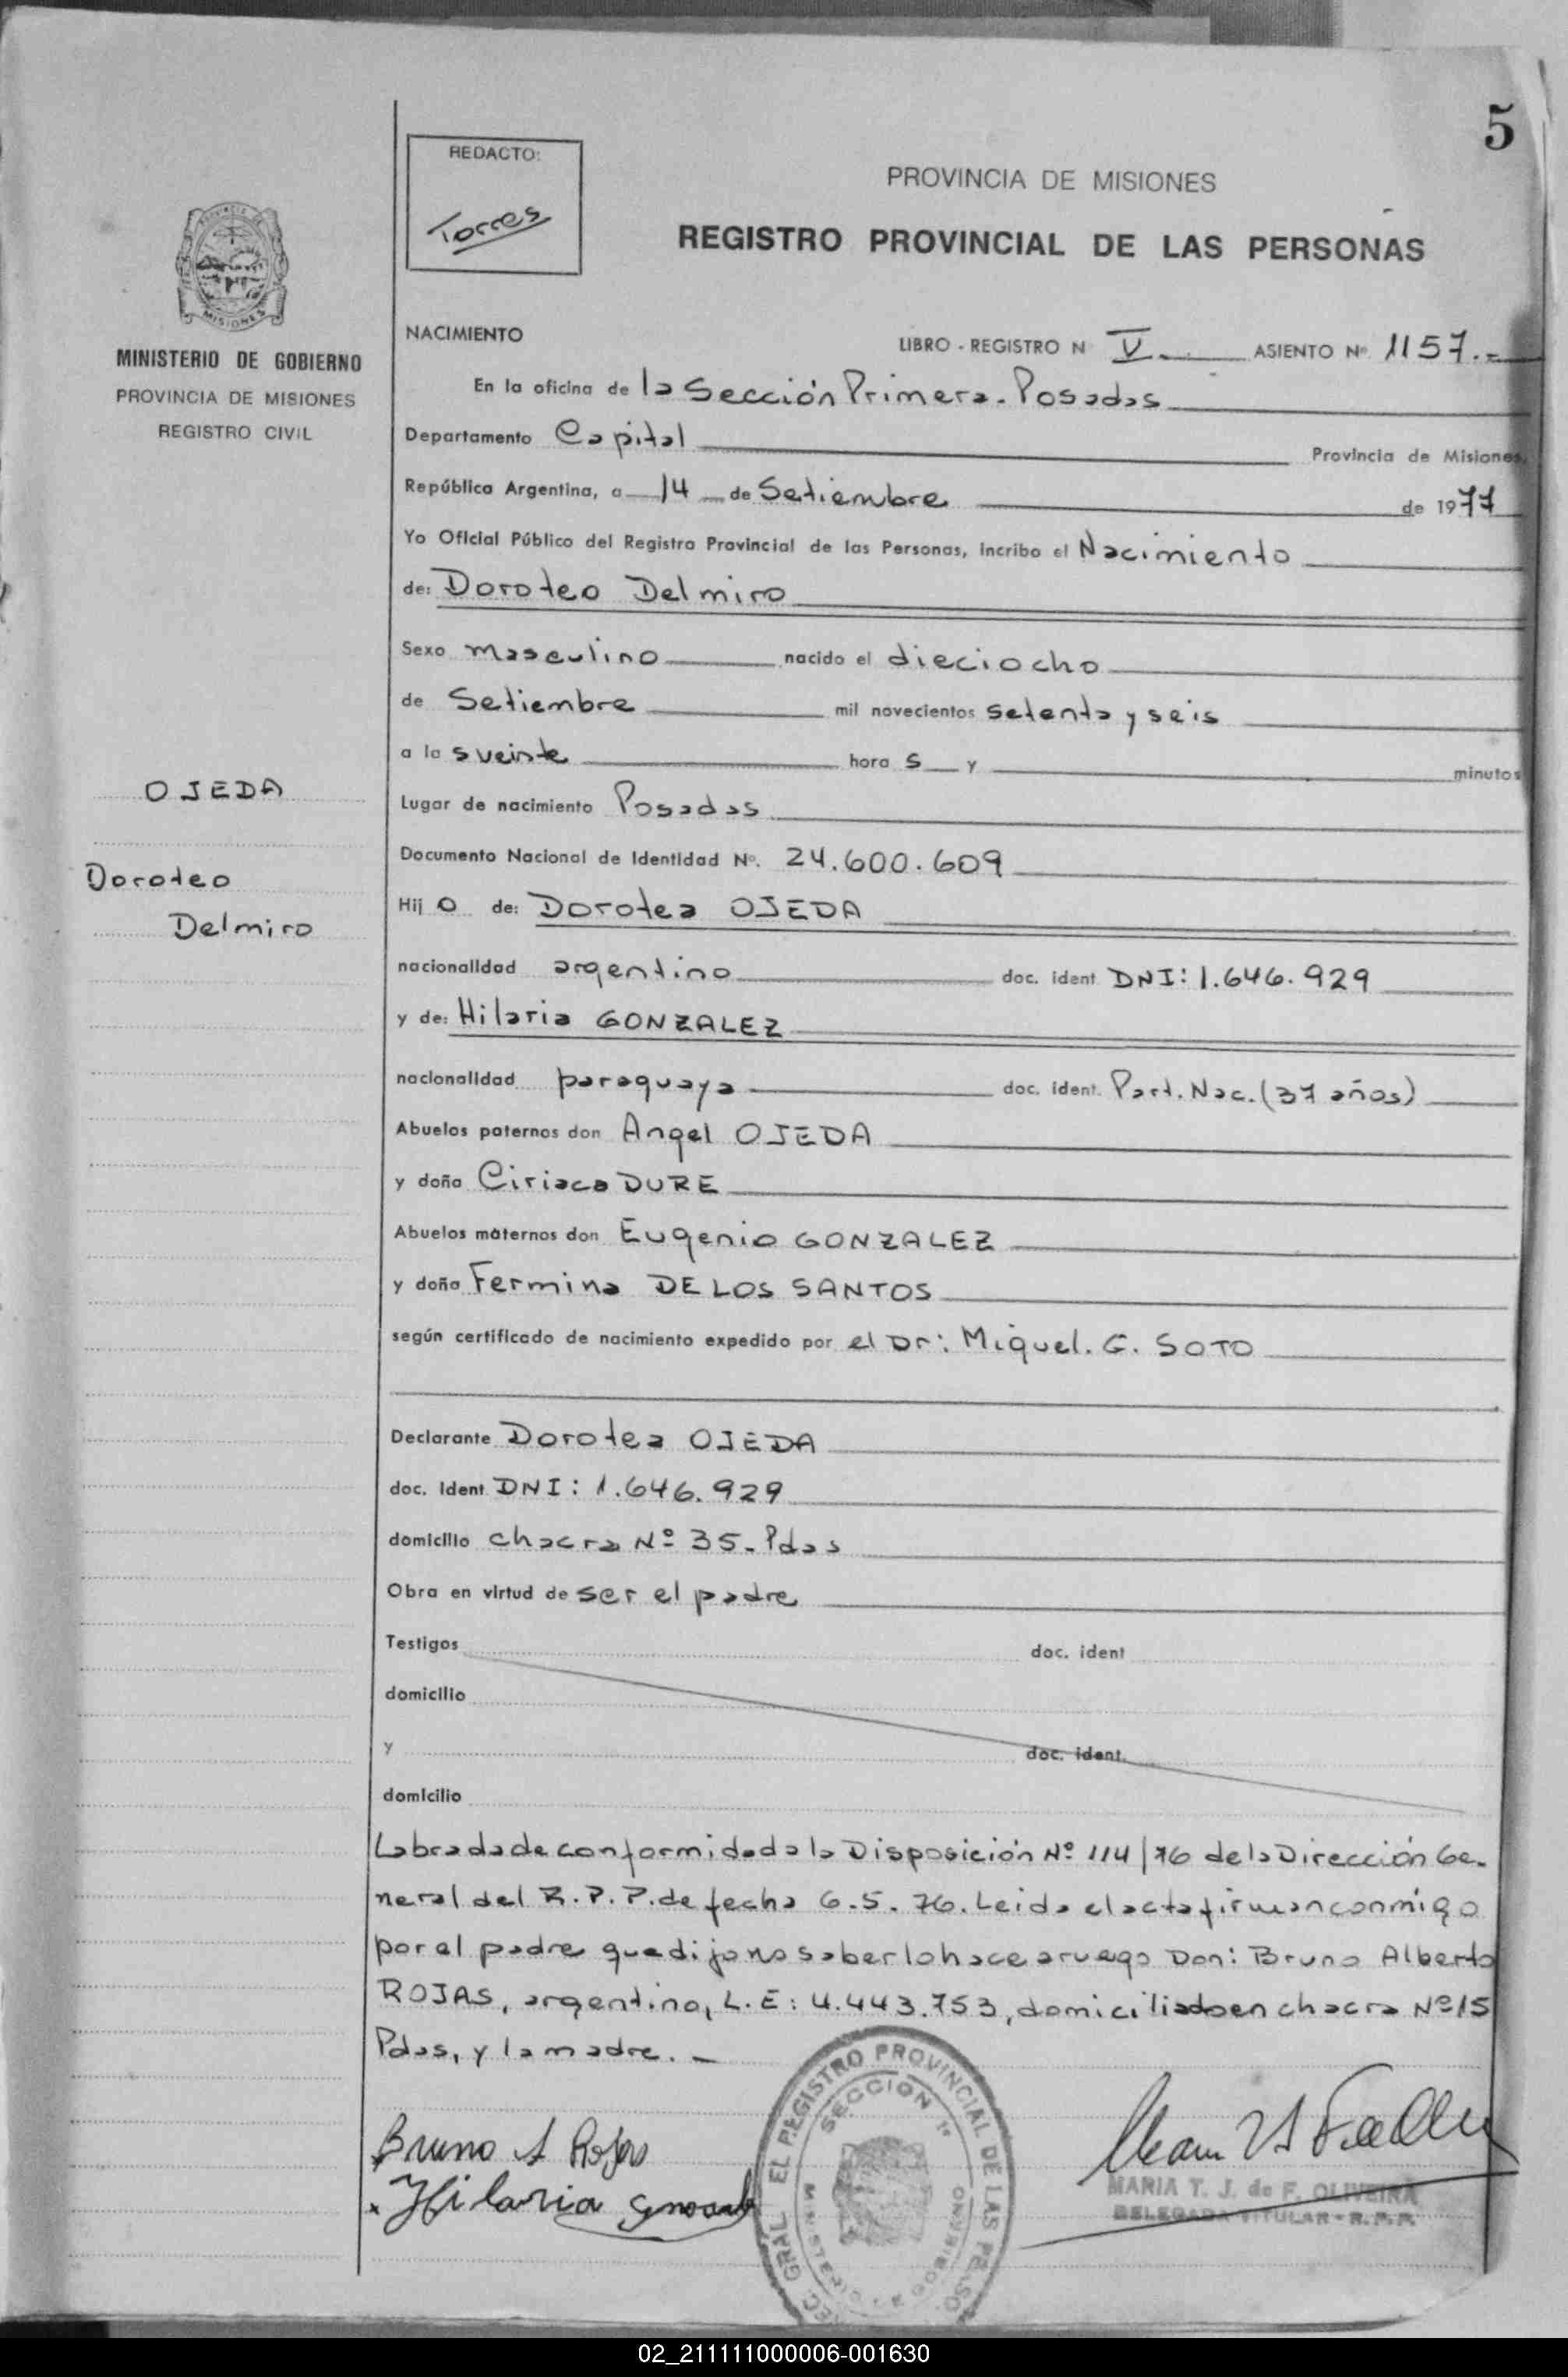 5
REDACTO:
Torres
PROVINCIA DE MISIONES
REGISTRO PROVINCIAL DE LAS PERSONAS
MISIONES
MINISTERIO DE GOBIERNO
PROVINCIA DE MISIONES
REGISTRO CIVIL
OJEDA
Doroteo
Delmiro
NACIMIENTO
LIBRO - REGISTRO N V. ASIENTO Nº 1157.-
En la oficina de la Sección Primera. Posadas
Departamento Capital Provincia de Misiones,
República Argentina, a 14 de Setiembre de 1977
Yo Oficial Público del Registro Provincial de las Personas, incribo el Nacimiento
de: Doroteo Delmiro
Sexo masculino nacido el dieciocho
de Setiembre mil novecientos setenta y seis
a las veinte horas y minutos
Lugar de nacimiento Posadas
Documento Nacional de Identidad Nº. 24.600.609
Hijo de: Dorotea OJEDA
nacionalidad argentino doc. ident DNI: 1.646.929
y de: Hilaria GONZALEZ
nacionalidad paraguaya doc. ident. Part. Nac. (37 años)
Abuelos paternos don Angel OJEDA
y doña Ciriaca DURE
Abuelos maternos don Eugenio GONZALEZ
y doña Fermina DE LOS SANTOS
según certificado de nacimiento expedido por el Dr: Miguel. G. SOTO
Declarante Dorotea OJEDA
doc. ident DNI: 1.646.929
domicilio chacra Nº 35. Pdas
Obra en virtud de ser el padre
Testigos doc. ident
domicilio
y doc. ident.
domicilio
Labrada de conformidad a la Disposición Nº 114/76 de la Dirección Ge-
neral del R.P.P. de fecha 6.5.76. Leida el acta firman conmigo
por el padre que dijo no saber lo hace a ruego Don: Bruno Alberto
ROJAS, argentino, L.E: 4.443.753, domiciliado en chacra Nº 15
Pdas, y la madre. -
Bruno A Rojas
Hilaria
GRAL EL REGISTRO PROVINCIAL DE LAS PERSO
SECCION 1ª
MINISTERIO GOBIERNO
MARIA T. J. de F. OLIVEIRA
DELEGADA TITULAR - R.P.P.
02_211111000006-001630